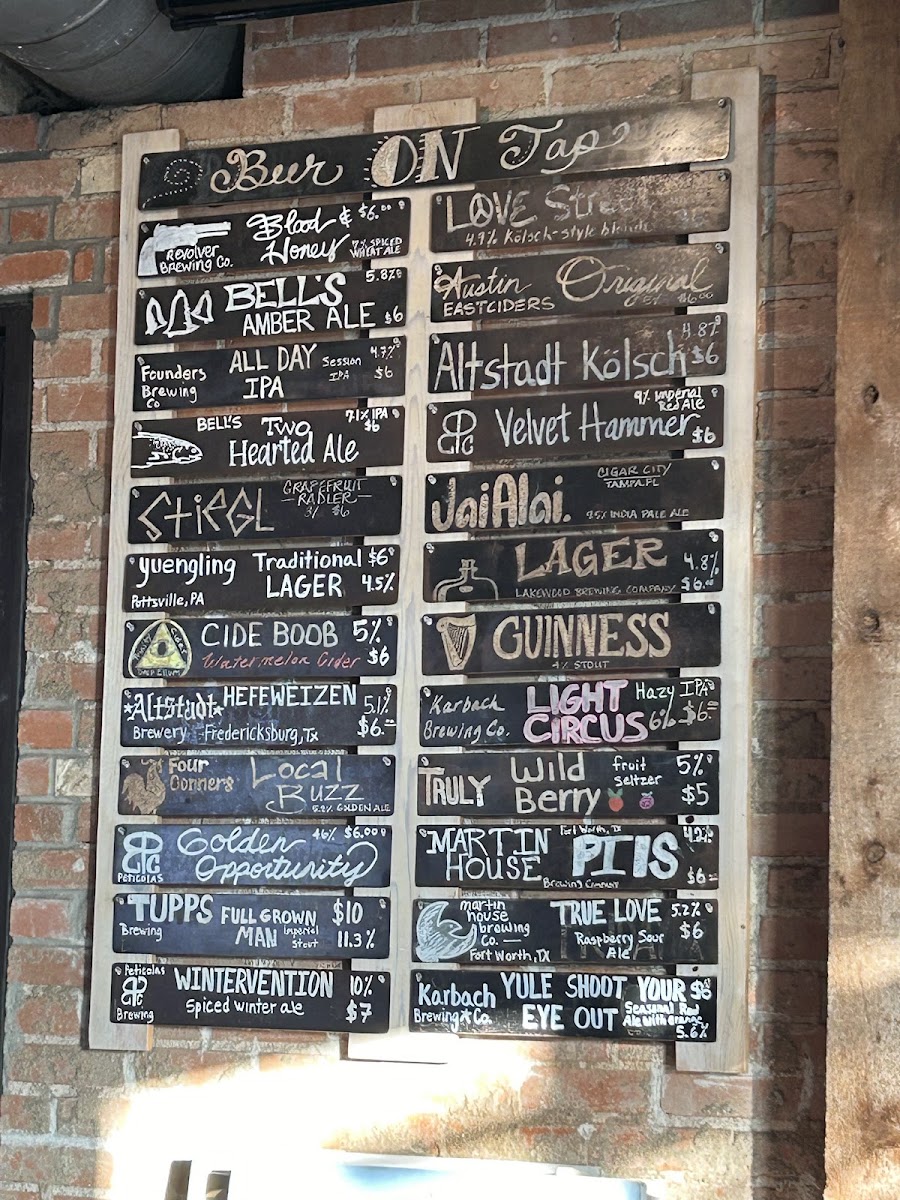 Beer ON Tap
REVOLVER
BREWING CO.
Blood &
Honey
$6.00
7% SPICED
WHEAT ALE
BELL'S
AMBER ALE
5.8%
$6
Founders
Brewing
Co
ALL DAY
IPA
Session
IPA
4.7%
$6
BELL'S
TWO
Hearted Ale
7.1% IPA
$6
STIEGL
GRAPEFRUIT
—RADLER—
3% $6
yuengling
Pottsville, PA
Traditional
LAGER
$6
4.5%
CIDE BOOB
Watermelon Cider
5%
$6
Altstadt
Brewery
HEFEWEIZEN
Fredericksburg, Tx
5.1%
$6.
FOUR
CORNERS
Local
BUZZ
5.2% GOLDEN ALE
PETICOLAS
Golden
Opportunity
4.6% $6.00
TUPPS
Brewing
FULL GROWN
MAN
Imperial
Stout
$10
11.3%
Peticolas
Brewing
WINTERVENTION
Spiced winter ale
10%
$7
LOVE
4.9% Kölsch-style
Austin
EASTCIDERS
Original
5% $6.00
Altstadt Kölsch
4.8%
$6
Velvet Hammer
9% Imperial
Red Ale
$6
Jai Alai.
CIGAR CITY
TAMPA, FL
INDIA PALE ALE
LAGER
LAKEWOOD BREWING COMPANY
4.8%
$6.00
GUINNESS
4% STOUT
Karbach
Brewing Co.
LIGHT
CIRCUS
Hazy IPA
6% $6.
TRULY
Wild
Berry
fruit
seltzer
5%
$5
MARTIN
HOUSE
Fort Worth, TX
Brewing Company
4.2%
$6
martin
house
brewing
co. —
Fort Worth, TX
TRUE LOVE
Raspberry Sour
Ale
5.2%
$6
Karbach
Brewing Co.
YULE SHOOT YOUR
EYE OUT
$6
Seasonal Red
Ale with orange
5.6%